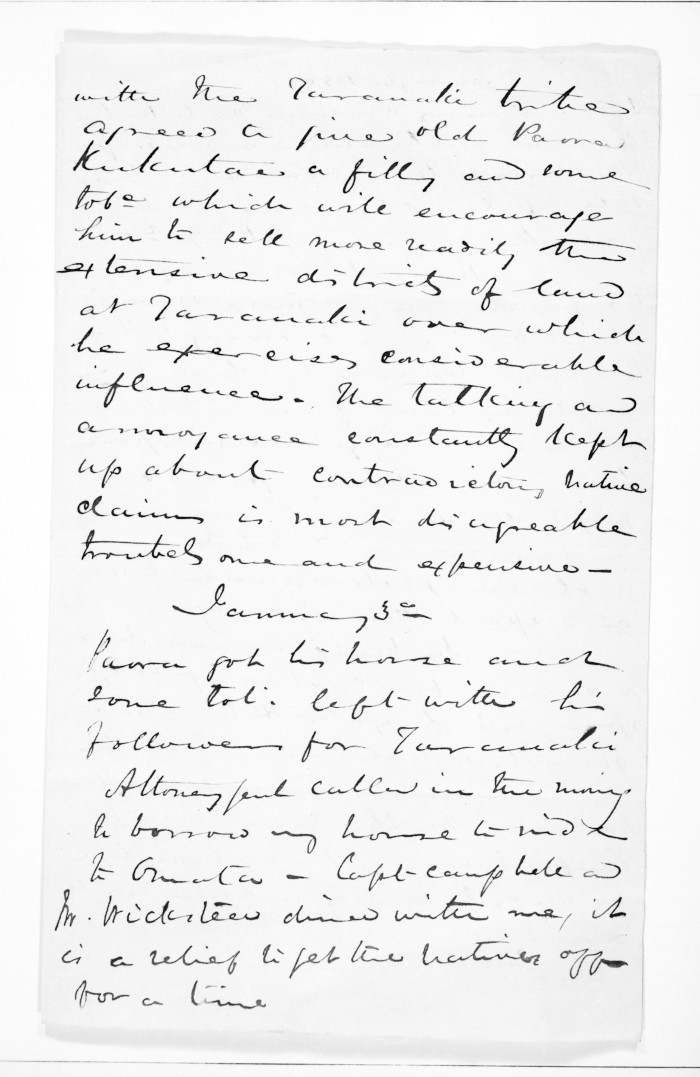 with the Taranaki tribe
agreed to give old Paora
Kukutae a filly and some
tobº which will encourage
him to sell more readily the
extensive districts of land
at Taranaki over which
he exercises considerable
influence. The talking and
annoyance constantly kept
up about contradictory native
claims is most disagreable
troublesome and expensive —
January 3d
Paora got his horse and
some tobº. left with his
followers for Taranaki
Attorney Genl called in the morng
to borrow my horse to ride
to Omata — Capt Campbell and
Mr. Wicksteed dined with me, it
is a relief to get the natives off
for a time